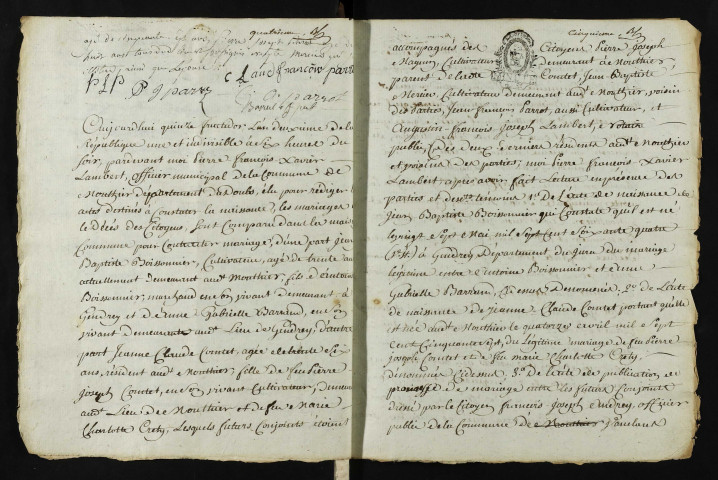 quatrieme
PJP P J parrez Claud francoiw parr
Cejourdhui quinze fructidor L'an deuxieme de la
République une et indivisible à Six heures du
Soir, pardevant moi Pierre François Xavier
Lambert, officier municipal de la Commune de
Mouthier département du Doubs, élu pour rediger les
actes destinés à Constater la naissance, les mariages et
le décès des Citoyens, Sont Comparu dans la maison
Commune pour Contracter mariage, d'une part Jean
Baptiste Boissonnier, Cultivateur, agé de trente ans
actuellement demeurant aud. Mouthier, fils d'Antoine
Boissonnier, marchand en son vivant demeurant à
Gendrey et d'Anne Gabrielle Barraud, en son
vivant demeurante aud. Lieu de Gendrey, d'autre
part Jeanne Claude Comtet, agée de trente Six
ans, résident aud. Mouthier, fille de feu Pierre
Joseph Comtet, en son vivant Cultivateur, demeurant
aud. Lieu de Mouthier et de feue Marie
Charlotte Crety, Lesquels futurs Conjoints étoient
Cinquieme
accompagnés des Citoyens Pierre Joseph
Cultivateur demeurant de Mouthier
parent de ladte Comtet, Jean Baptiste
Cultivateur demeurant aud. Mouthier, voisin
des parties, Jean François Parrot, aussi Cultivateur, et
Augustin François Joseph Lambert, notaire
public, Ces deux derniers résidents aud. Mouthier
et voisins des parties; moi Pierre François Xavier
Lambert après avoir fait Lecture en présence des
parties et des témoins 1.° de L'acte de naissance de
Jean Baptiste Boissonnier qui Constate qu'il est né
le vingt Sept Mai mil Sept Cent Soixante quatre
à Gendrey Département du Jura du mariage
légitime entre Antoine Boissonnier et Anne
Gabrielle Barraud, Cidessus dénommés, 2.° de L'acte
de naissance de Jeanne Claude Comtet portant qu'elle
est née aud. Mouthier le quatorze avril mil Sept
Cent Cinquante Sept, du Legitime mariage de feu Pierre
Joseph Comtet et de feue Marie Charlotte Crety,
dénommés Cidessus. 3.° de L'acte de publication de
promesse de mariage entre les futurs Conjoints
dressé par le Citoyen François Joseph Gudrey, officier
public de la Commune de Mouthier